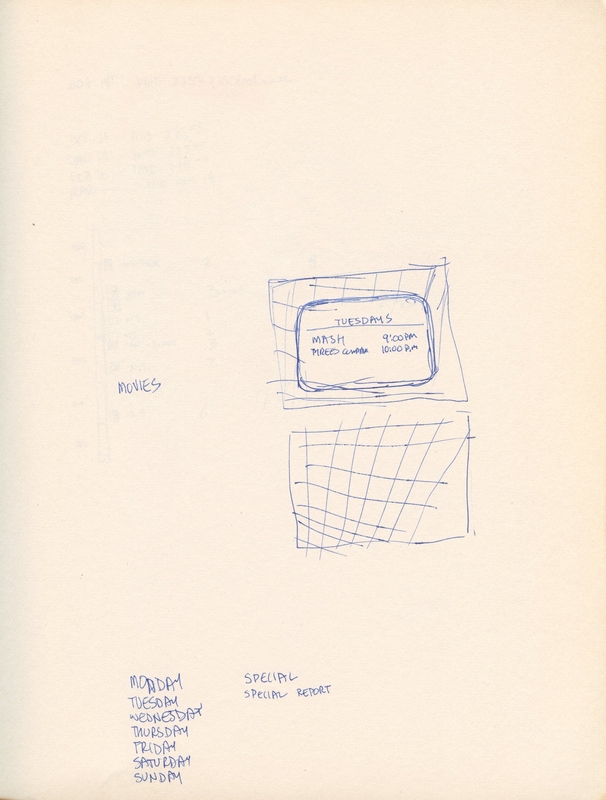 TUESDAYS
MASH 9:00 PM
10:00 P.M
MOVIES
MONDAY
TUESDAY
WEDNESDAY
THURSDAY
FRIDAY
SATURDAY
SUNDAY
SPECIAL
SPECIAL REPORT